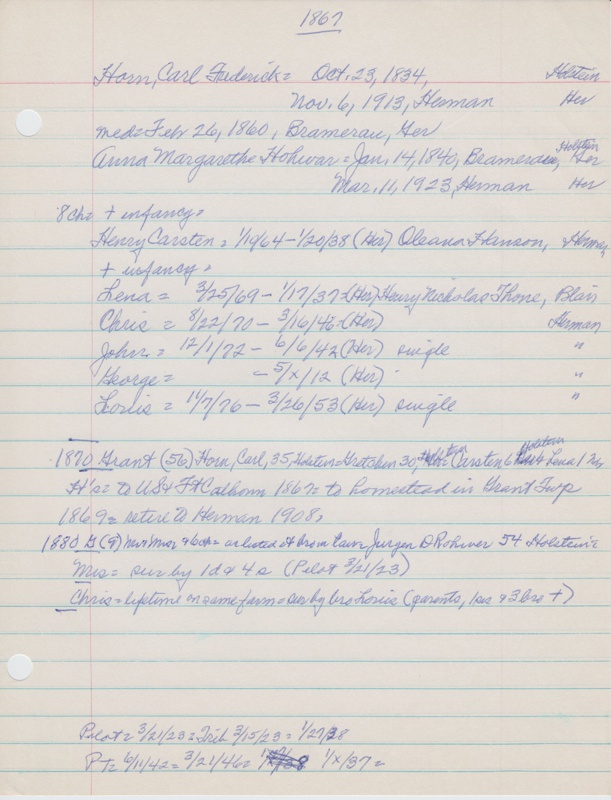 1867
Horn, Carl Frederick = Oct. 23, 1834, Holstein
Nov. 6, 1913, Herman Ger
med = Feb 26, 1860, Bramerau, Ger
Anna Margarethe Rohwar = Jan. 14, 1840, Bramerau, Holstein Ger
Mar. 11, 1923, Herman Ger
8 ch = + infancy =
Henry Carsten = 1/19/64 - 1/20/38 (Her) Oleana Hanson, Herman
+ infancy =
Lena = 3/25/69 - 1/17/37 (Her) Henry Nicholas Thone, Blair
Chris = 8/22/70 - 3/16/46 (Her) Herman
John = 12/1/72 - 6/6/42 (Her) single "
George = - 5/x/12 (Her) "
Louis = 11/7/76 - 3/26/53 (Her) single "
1870 Grant (56) Horn, Carl, 35, Holstein = Gretchen 30, Holstein = Carsten 6 Holstein Lena 1 Neb
H's = to US & Ft Calhoun 1867 = to homestead in Grant Twp
1869 = retire to Herman 1908,
1880 G (9) Mr & Mrs & 6 ch = as listed & bro in law Jurgen D Rohwer 54 Holstein =
Mrs = sur by 1 d & 4 s (Pilot 3/21/23)
Chris = lifetime on same farm = sur by bro Louis (parents, 1 sis & 3 bro +)
Pilot = 3/21/23 = Trib 3/15/23 = 1/27/38
PT = 6/11/42 = 3/21/46 = 1/x/37 =